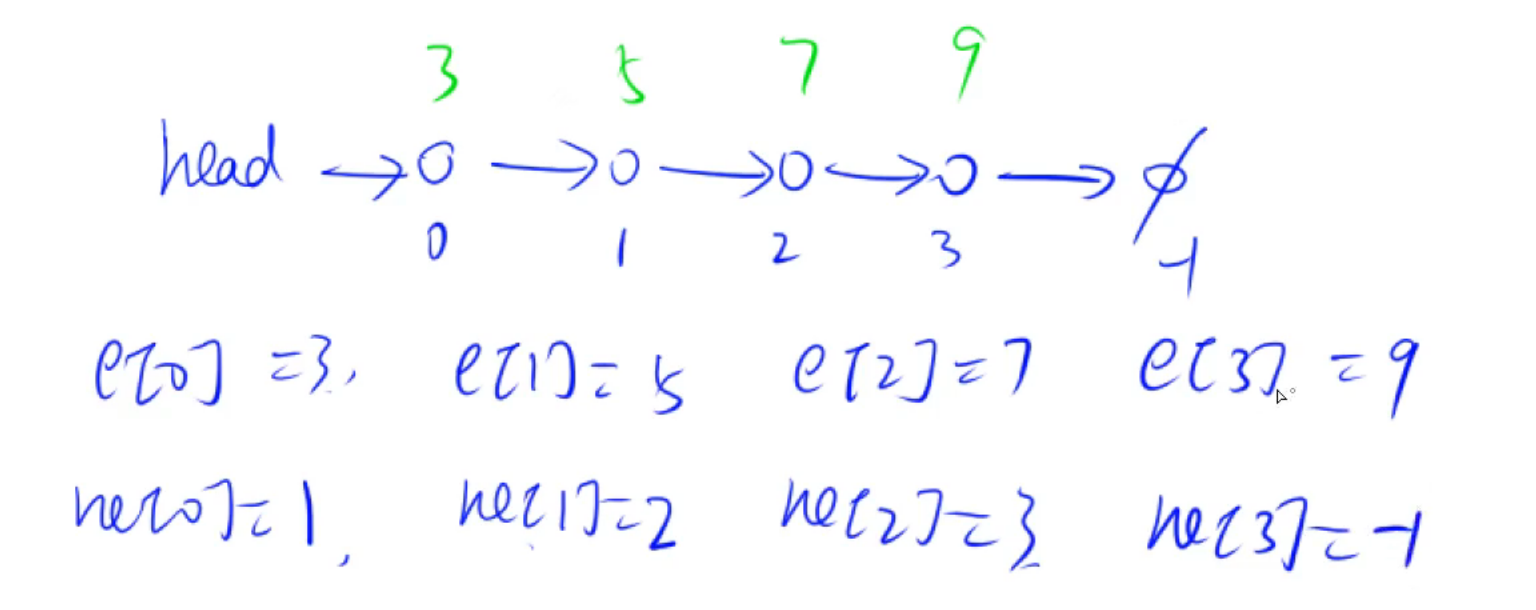 3 5 7 9
head → O → O → O → O → ∅
0 1 2 3 -1
e[0] =3, e[1]=5 e[2]=7 e[3] =9
ne[0]=1, ne[1]=2 ne[2]=3 ne[3]=-1